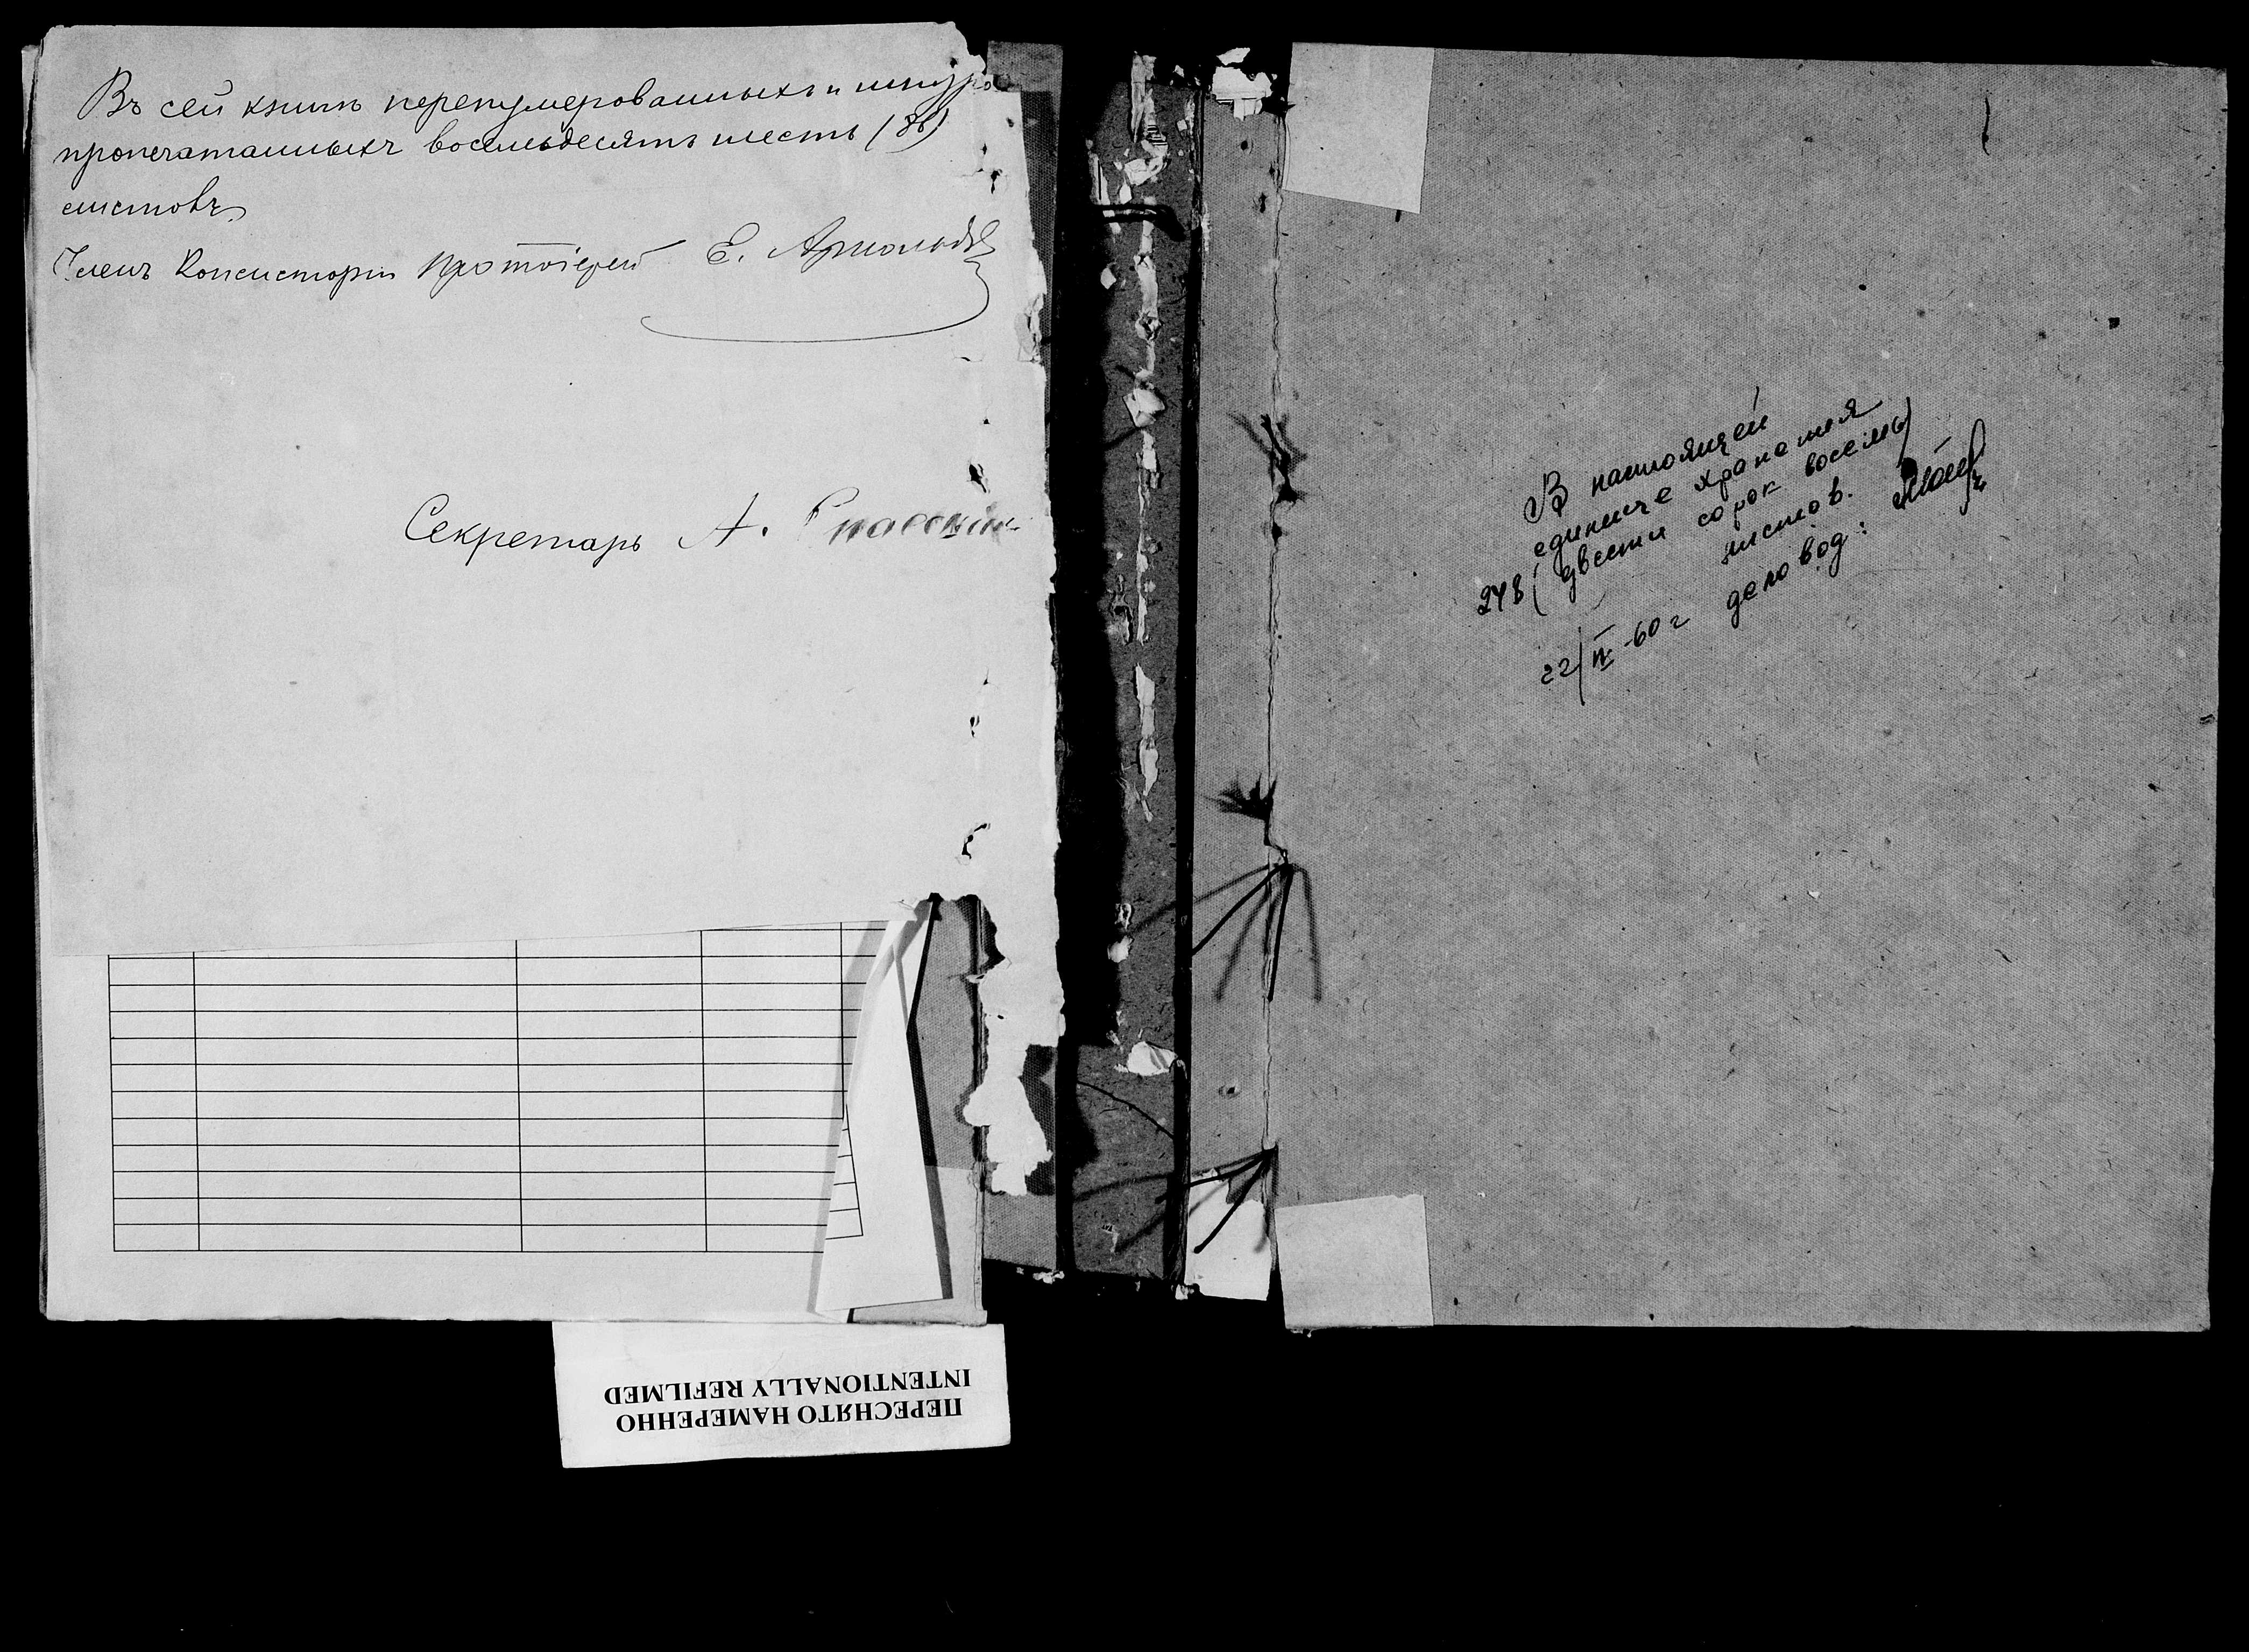 Въ сей книгѣ перенумерованныхъ и шнуро
пропечатанныхъ восемьдесятъ шесть (86)
листовъ
Членъ Консисторіи Протоіерей Е. Арнольдъ
Секретарь А. Спасскій
В настоящей
единице хранения
248 (двести сорок восемь)
листов.
22/IV-60 г деловод:
ПЕРЕСНЯТО НАМЕРЕННО
INTENTIONALLY REFILMED